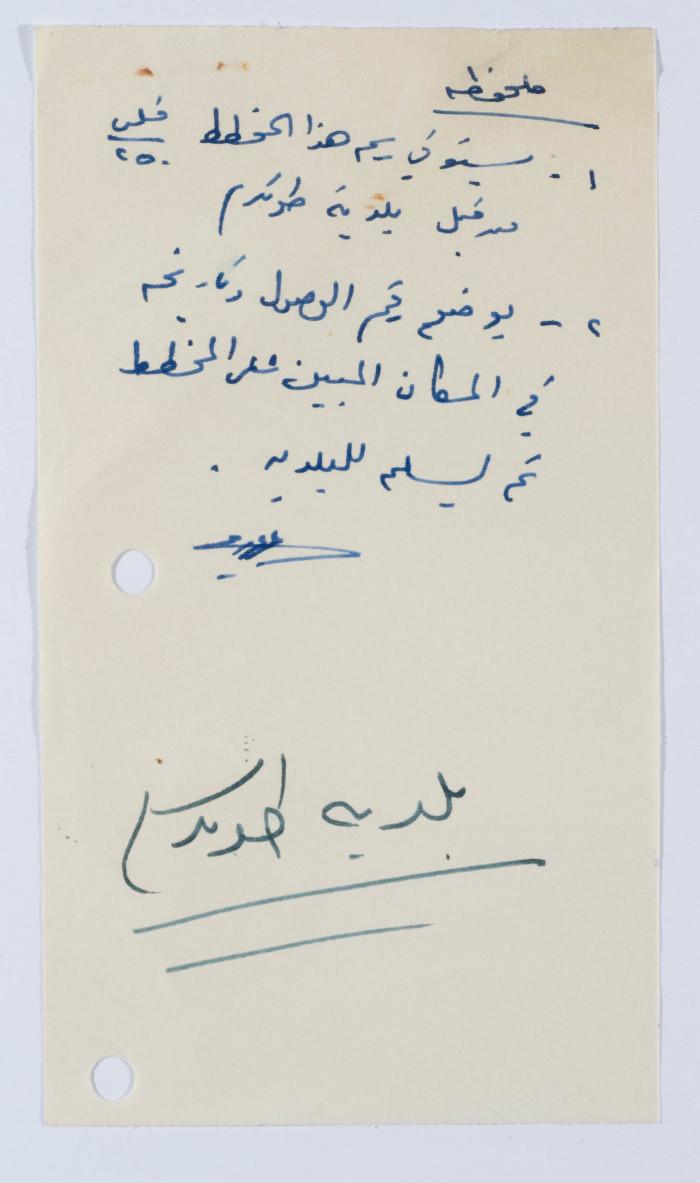 ملحوظه
١ - يستوفي رسم هذا المخطط ٢٥٠ فلس
من قبل بلدية طولكرم
٢ - يوضع رقم الوصول وتاريخه
في المكان المبين على المخطط
ثم يسلم للبلدية .
بلدية طولكرم